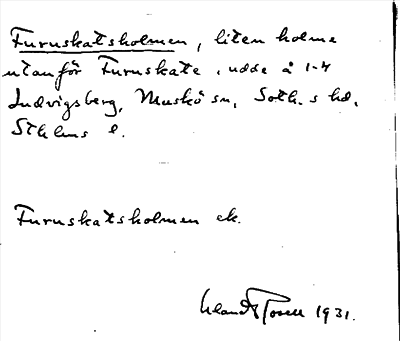 Furuskatsholmen, liten holme
utanför Furuskate, udde å 1-4
Ludvigsberg, Muskö sn, Soth.s hd,
Sthlms l.
Furuskatsholmen ek.
1931.